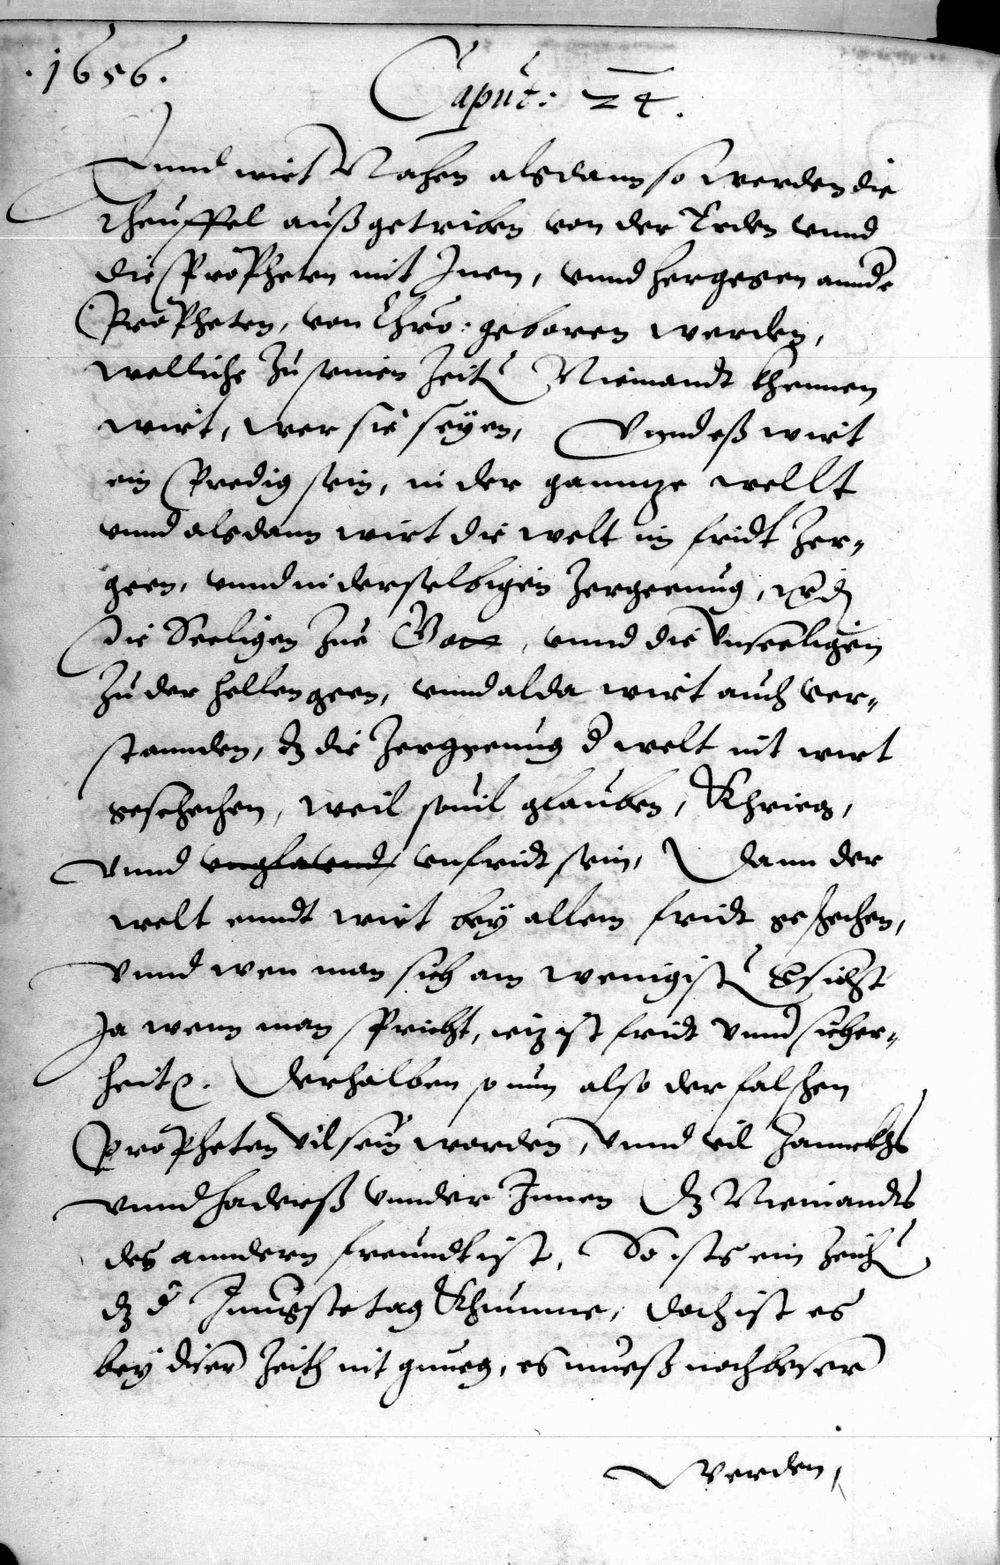 .1656.
Caput: 24.
Vnnd wirt Nahen alsdann so werden die
Theuffel außgetriben von der Erden vnnd
die Propheten mit Inen, vnnd hergegen annde
Propheten, von Chro: geboren werden,
welliche zu seinen Zeit Niemandt khennen
wirt, wer sie seyen, Vnnd eß wirt
ein Predig sein, in der ganntze wellt
vnnd alsdann wirt die welt im fridt Zer=
geen, vnnd in derselbigen Zergeenug, werd
die Seeligen zue Gott, vnnd die Vnseeligen
zu der hellen geen, vnnd alda wirt auch ver=
stannden, dz die Zergeenug d welt nit wirt
geschechen, weil souil glauben, Khrieg,
vnnd vnfridt sein, Dann der
welt enndt wirt bey allem fridt geschechen,
Vnnd wen man sich am wenigist vsicht
Ja wenn man spricht, iez ist fridt vnnd sicher=
heit. Derhalben so nun also der falschen
Propheten vil sein worden, vnnd vil Zannckhs
vnnd haderß vnnder Innen dz Niemandts
des anndern freundt ist, So ists ein Zeich
dz d Jungste tag Khumme, doch ist es
bey diser Zeith nit gnueg, es mueß noch beser
werden,